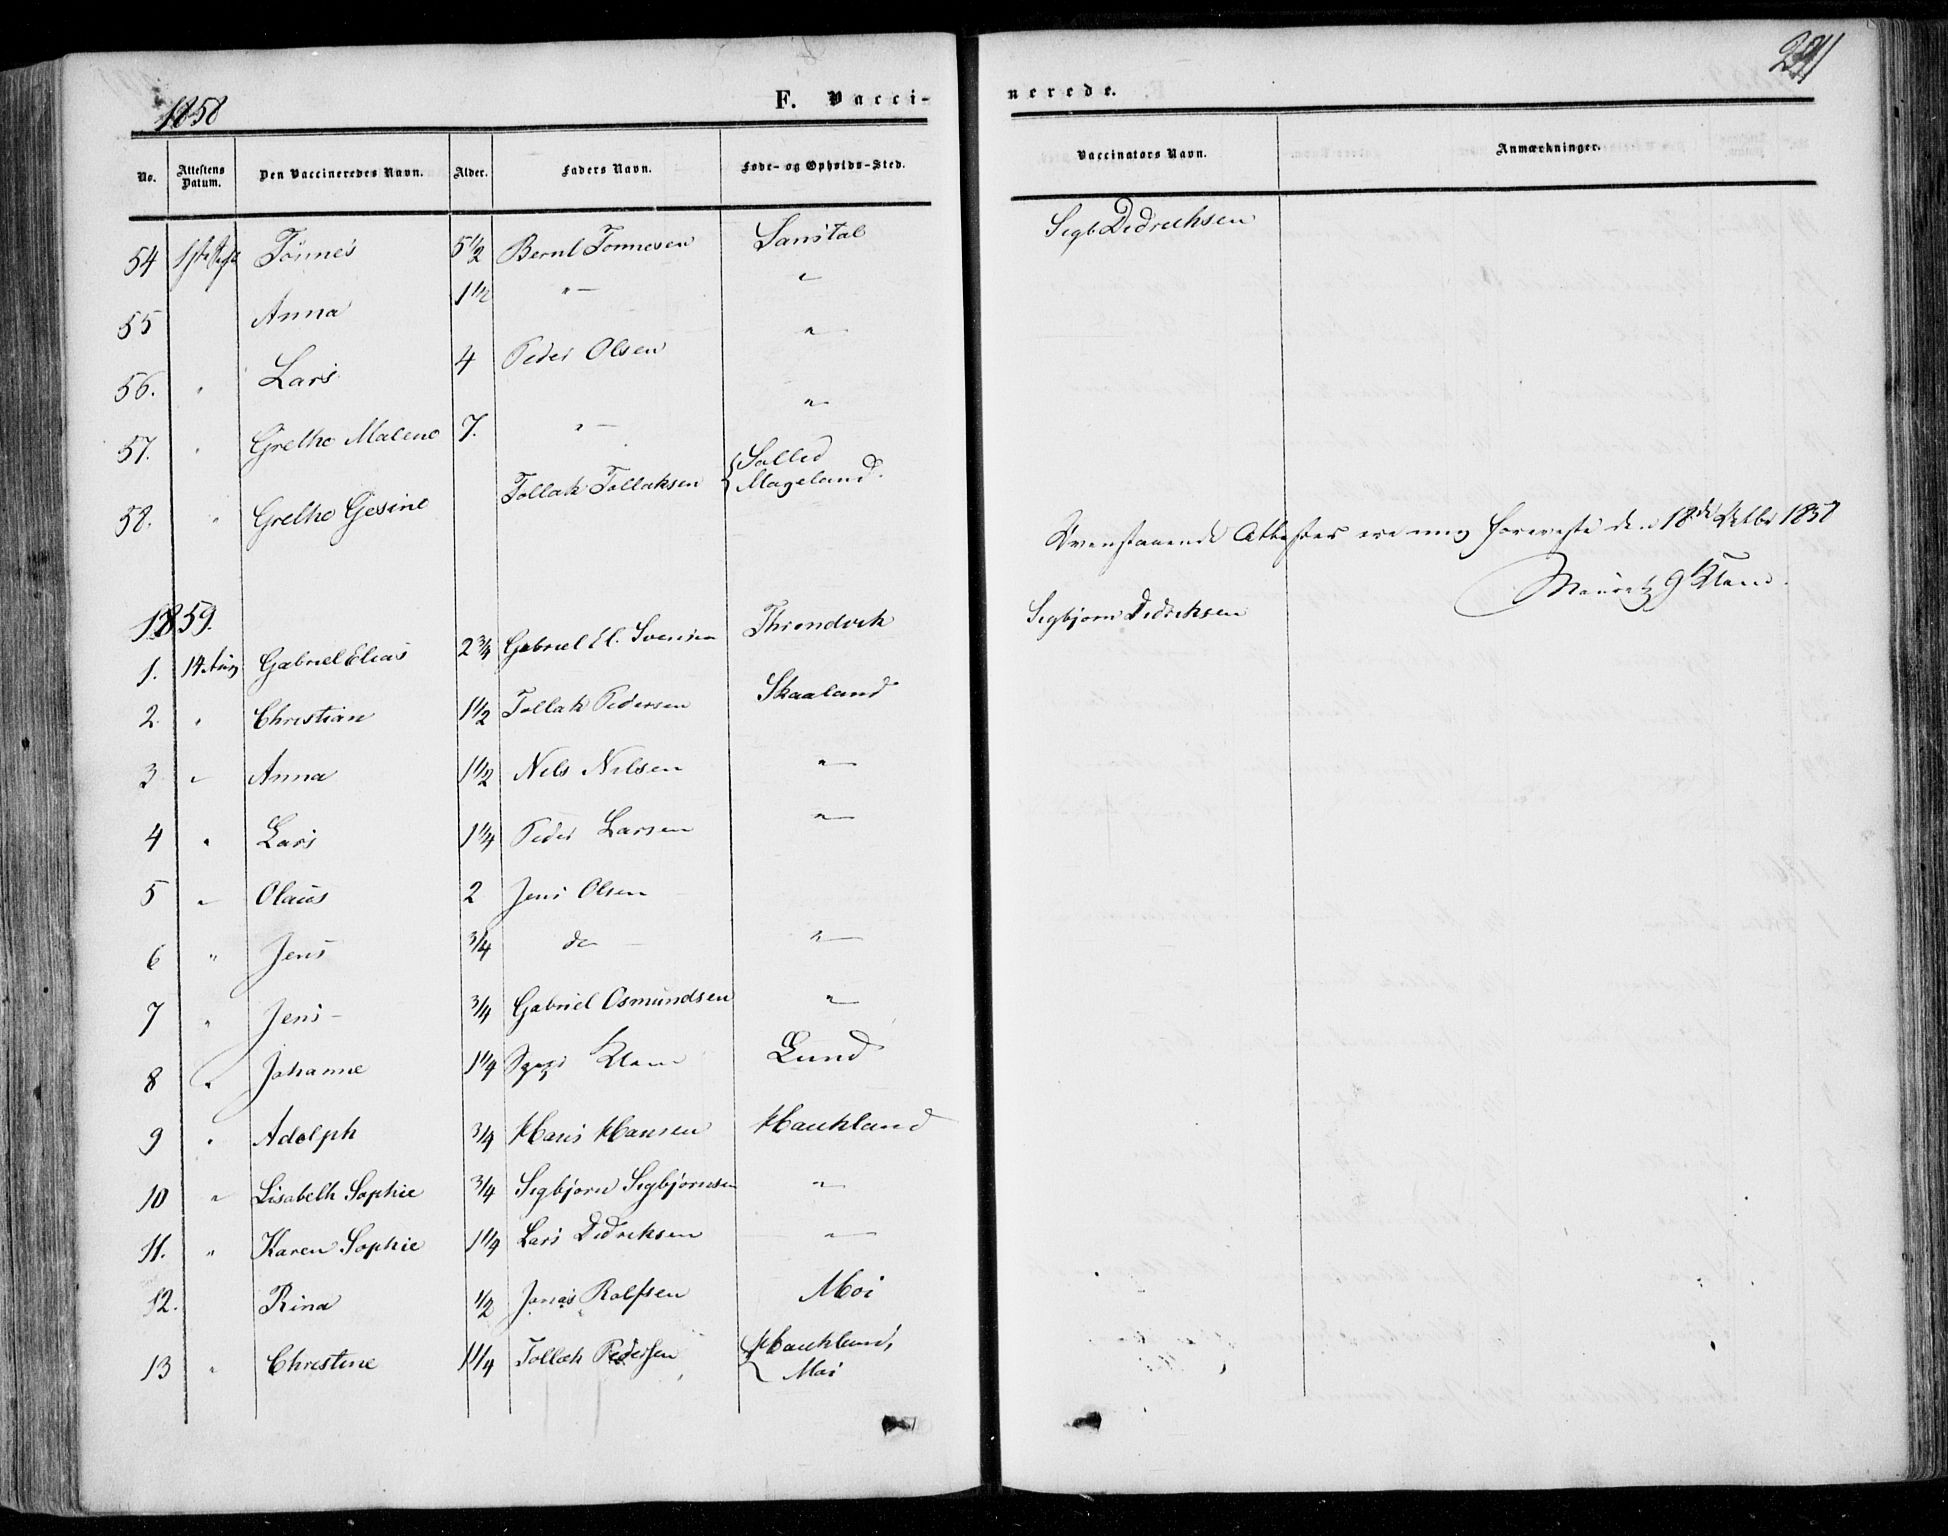 1858
F. Vacci-
nerede.
No. Attestens Datum. Den Vaccineredes Navn. Alder. Faders Navn. Føde- og Opholds-Sted. Vaccinators Navn. Anmærkninger.
54 Tønnes 5 1/2 Bernt Tonnesen Sanstøl Sigb. Didrichsen
55 Anna 1 1/2 " — "
56. " Lars 4 Peder Olsen "
57. " Grethe Malene 7. " — "
58. " Grethe Gesine Tollak Tollaksen { Salled Mageland.
Ovenstaaende Attester ere mig foreviste den 18de Octbr 1858
1859.
1. 14 Aug Gabriel Elias 2 3/4 Gabriel El. Svensen Throndvik Sigbjørn Didriksen
2. " Christian 1 1/2 Tollak Pedersen Skaaland
3 " Anna 1 1/2 Nils Nilsen "
4 " Lars 1 1/4 Peder Larsen "
5 " Olaus 2 Jens Olsen
6 " Jens 3/4 do "
7 " Jens — 3/4 Gabriel Osmundsen "
8 " Johanne 1 1/4 Lund
9 " Adolph 3/4 Hans Hansen Haukland
10 " Lisabeth Sophie 3/4 Sigbjørn Sigbjørnsen "
11. " Karen Sophie 1 1/4 Lars Didriksen "
12. Rina 1/2 Jonas Rolfsen Moi
13 " Christine 1 1/4 Tollak Pedersen { Haukland, Moi